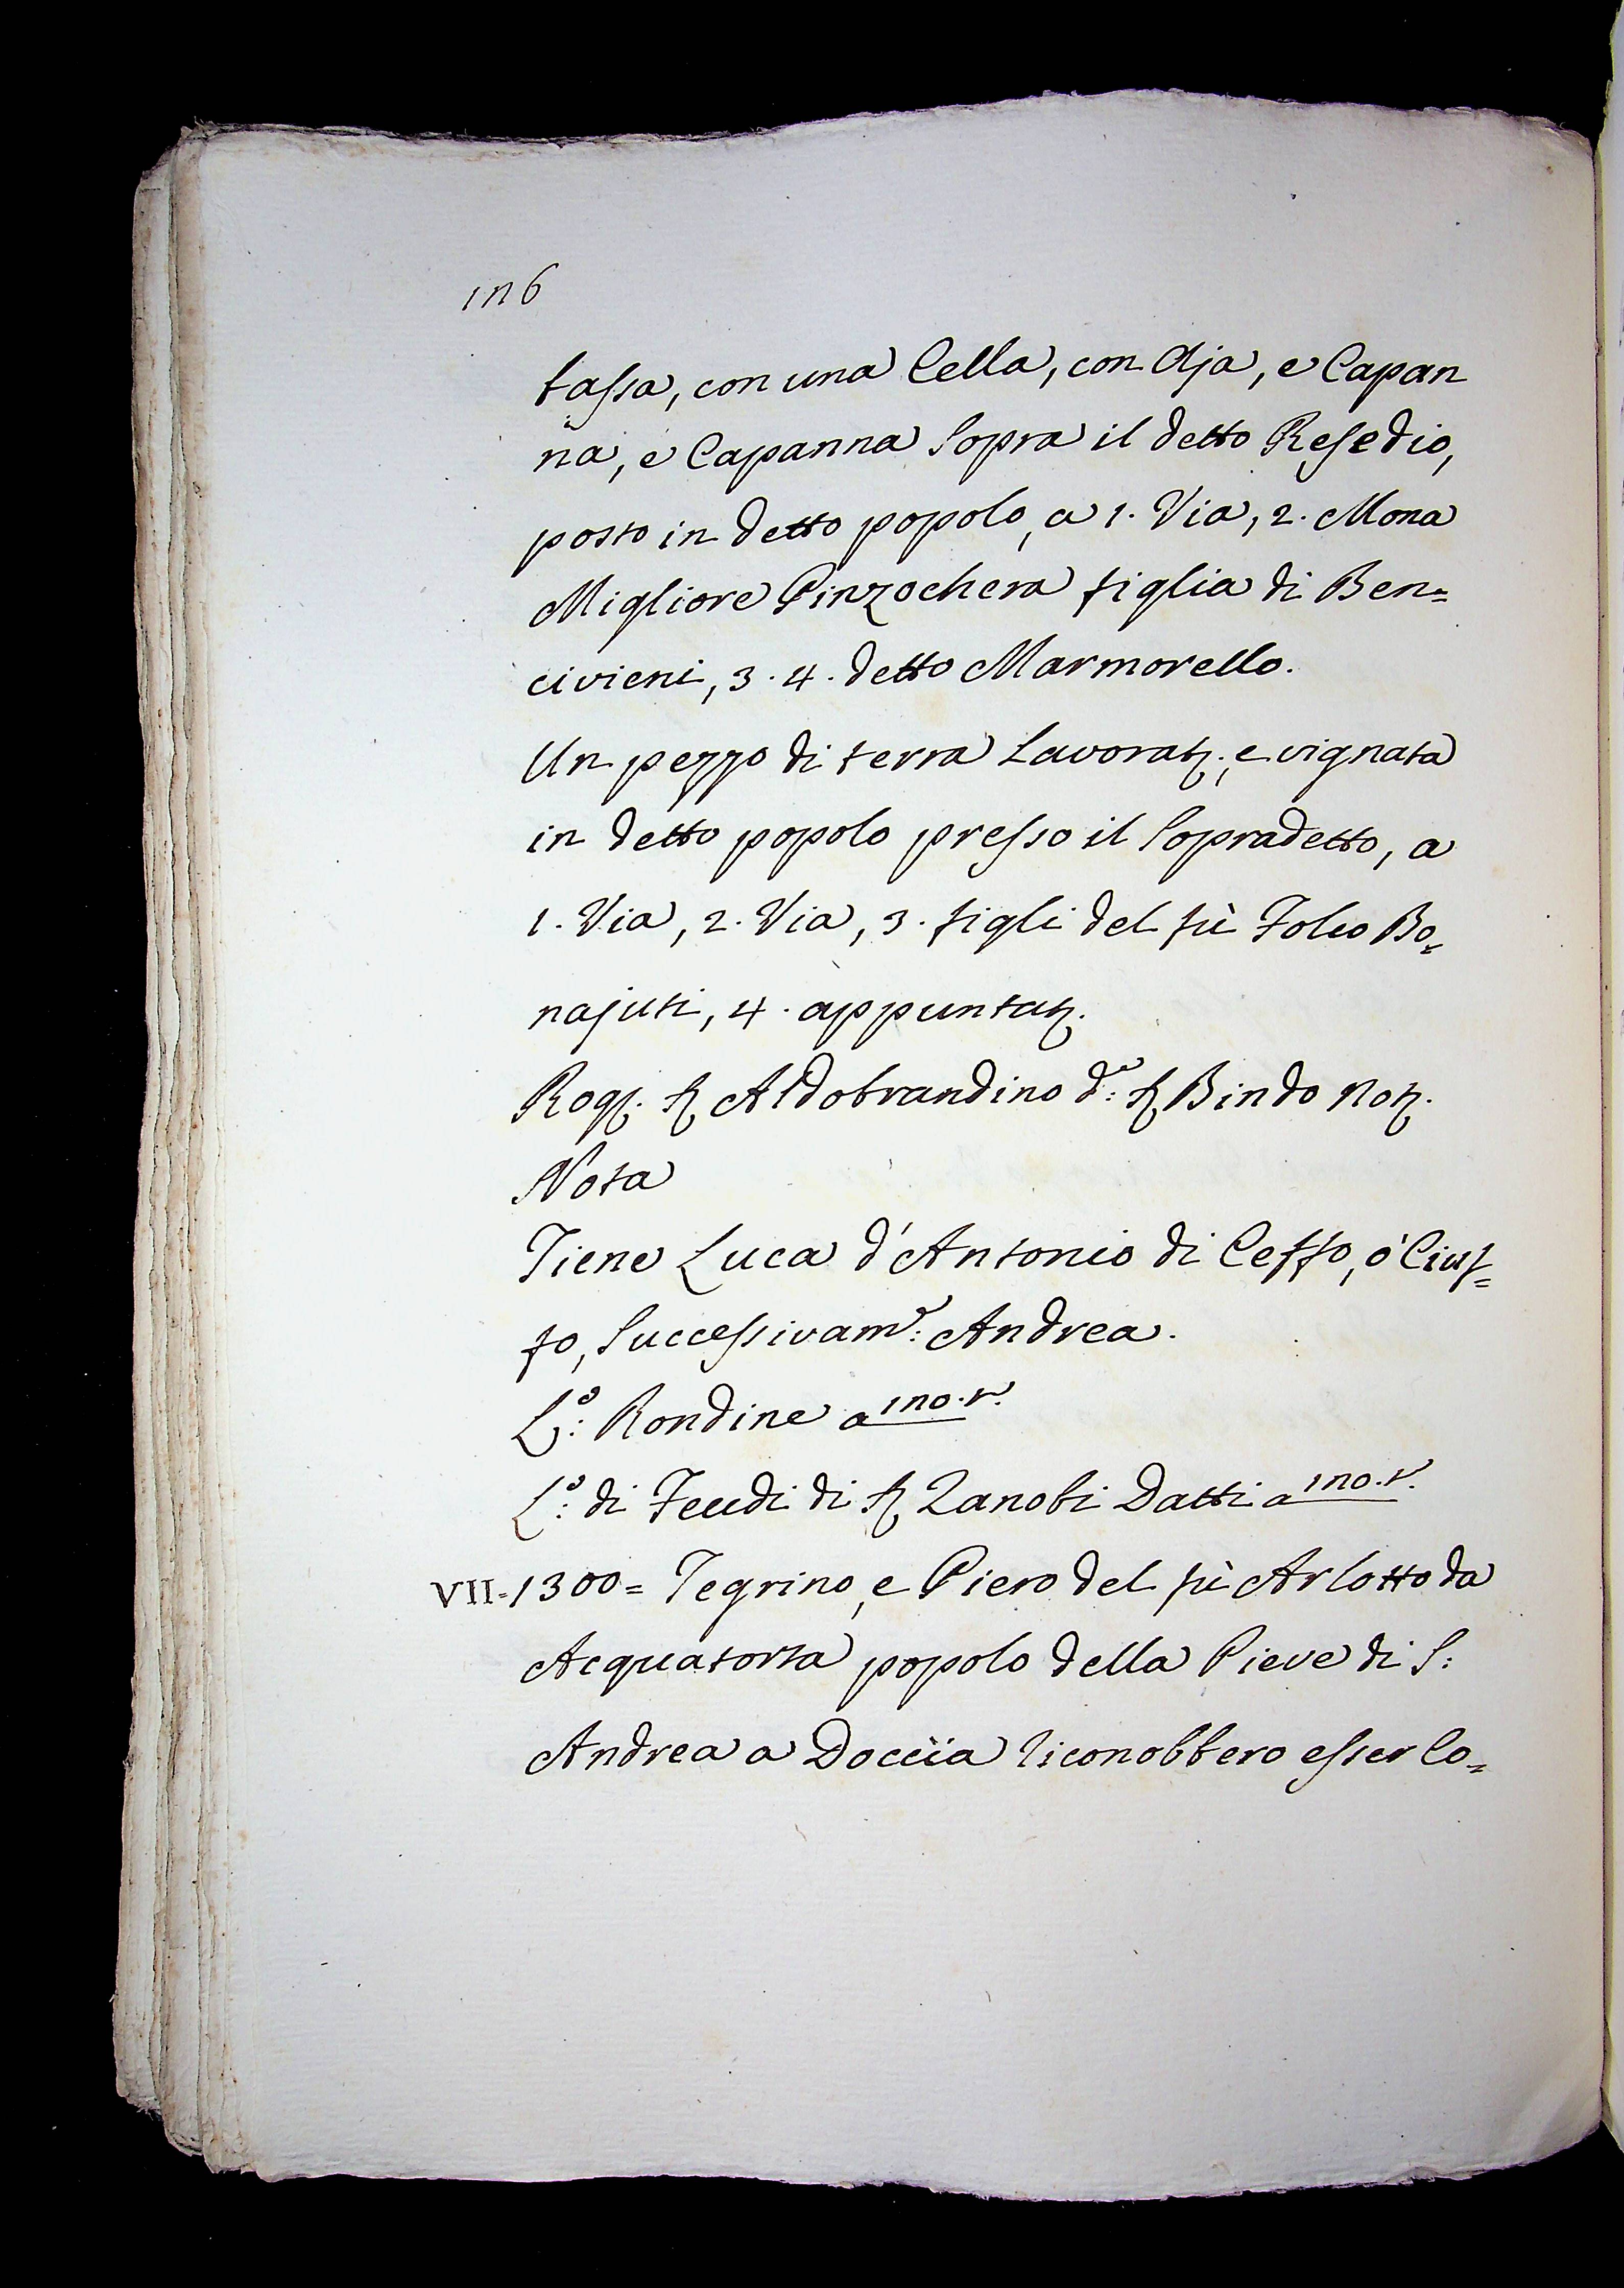 156
bassa, con una Cella, con Aja, e Capan
na, e Capanna sopra il detto Resedio,
posto in detto popolo, a 1. Via, 2. Mona
Migliore Pinzochera figlia di Ben=
civieni, 3. 4. detto Marmorello.
Un pezzo di terra lavorat. e vignata
in detto popolo presso il sopradetto, a
1. Via, 2. Via, 3. figli del fù Folco Bo=
najuti, 4. appuntat.
Rog. S. Aldobrandino d.º S. Bindo Not.
Nota
Tiene Luca d'Antonio di Ceffo, ò Ciuf=
fo, successivam.e: Andrea.
L.º: Rondine a
L.º: di Feudi di S. Zanobi Datti a
VII. 1300 = Tegrino, e Piero del fù Arlotto da
Acquatorta popolo della Pieve di S:
Andrea a Doccia riconobbero esser Co=